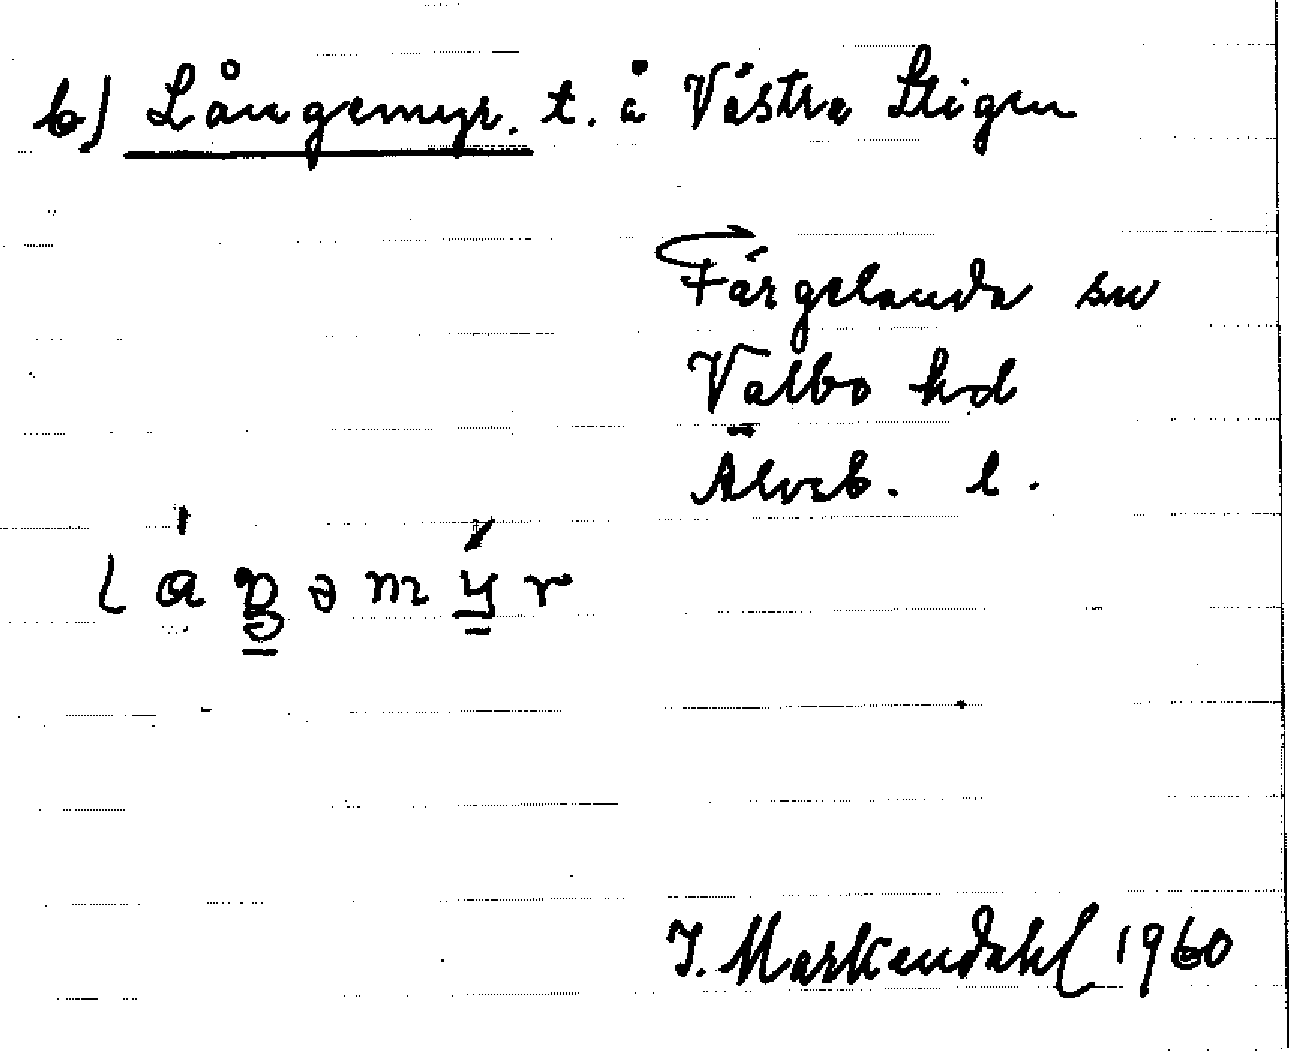 b) Långemyr. t. å Västra Stigen
Färgelanda sn
Valbo hd
Älvsb. l.
I. Markendahl 1960